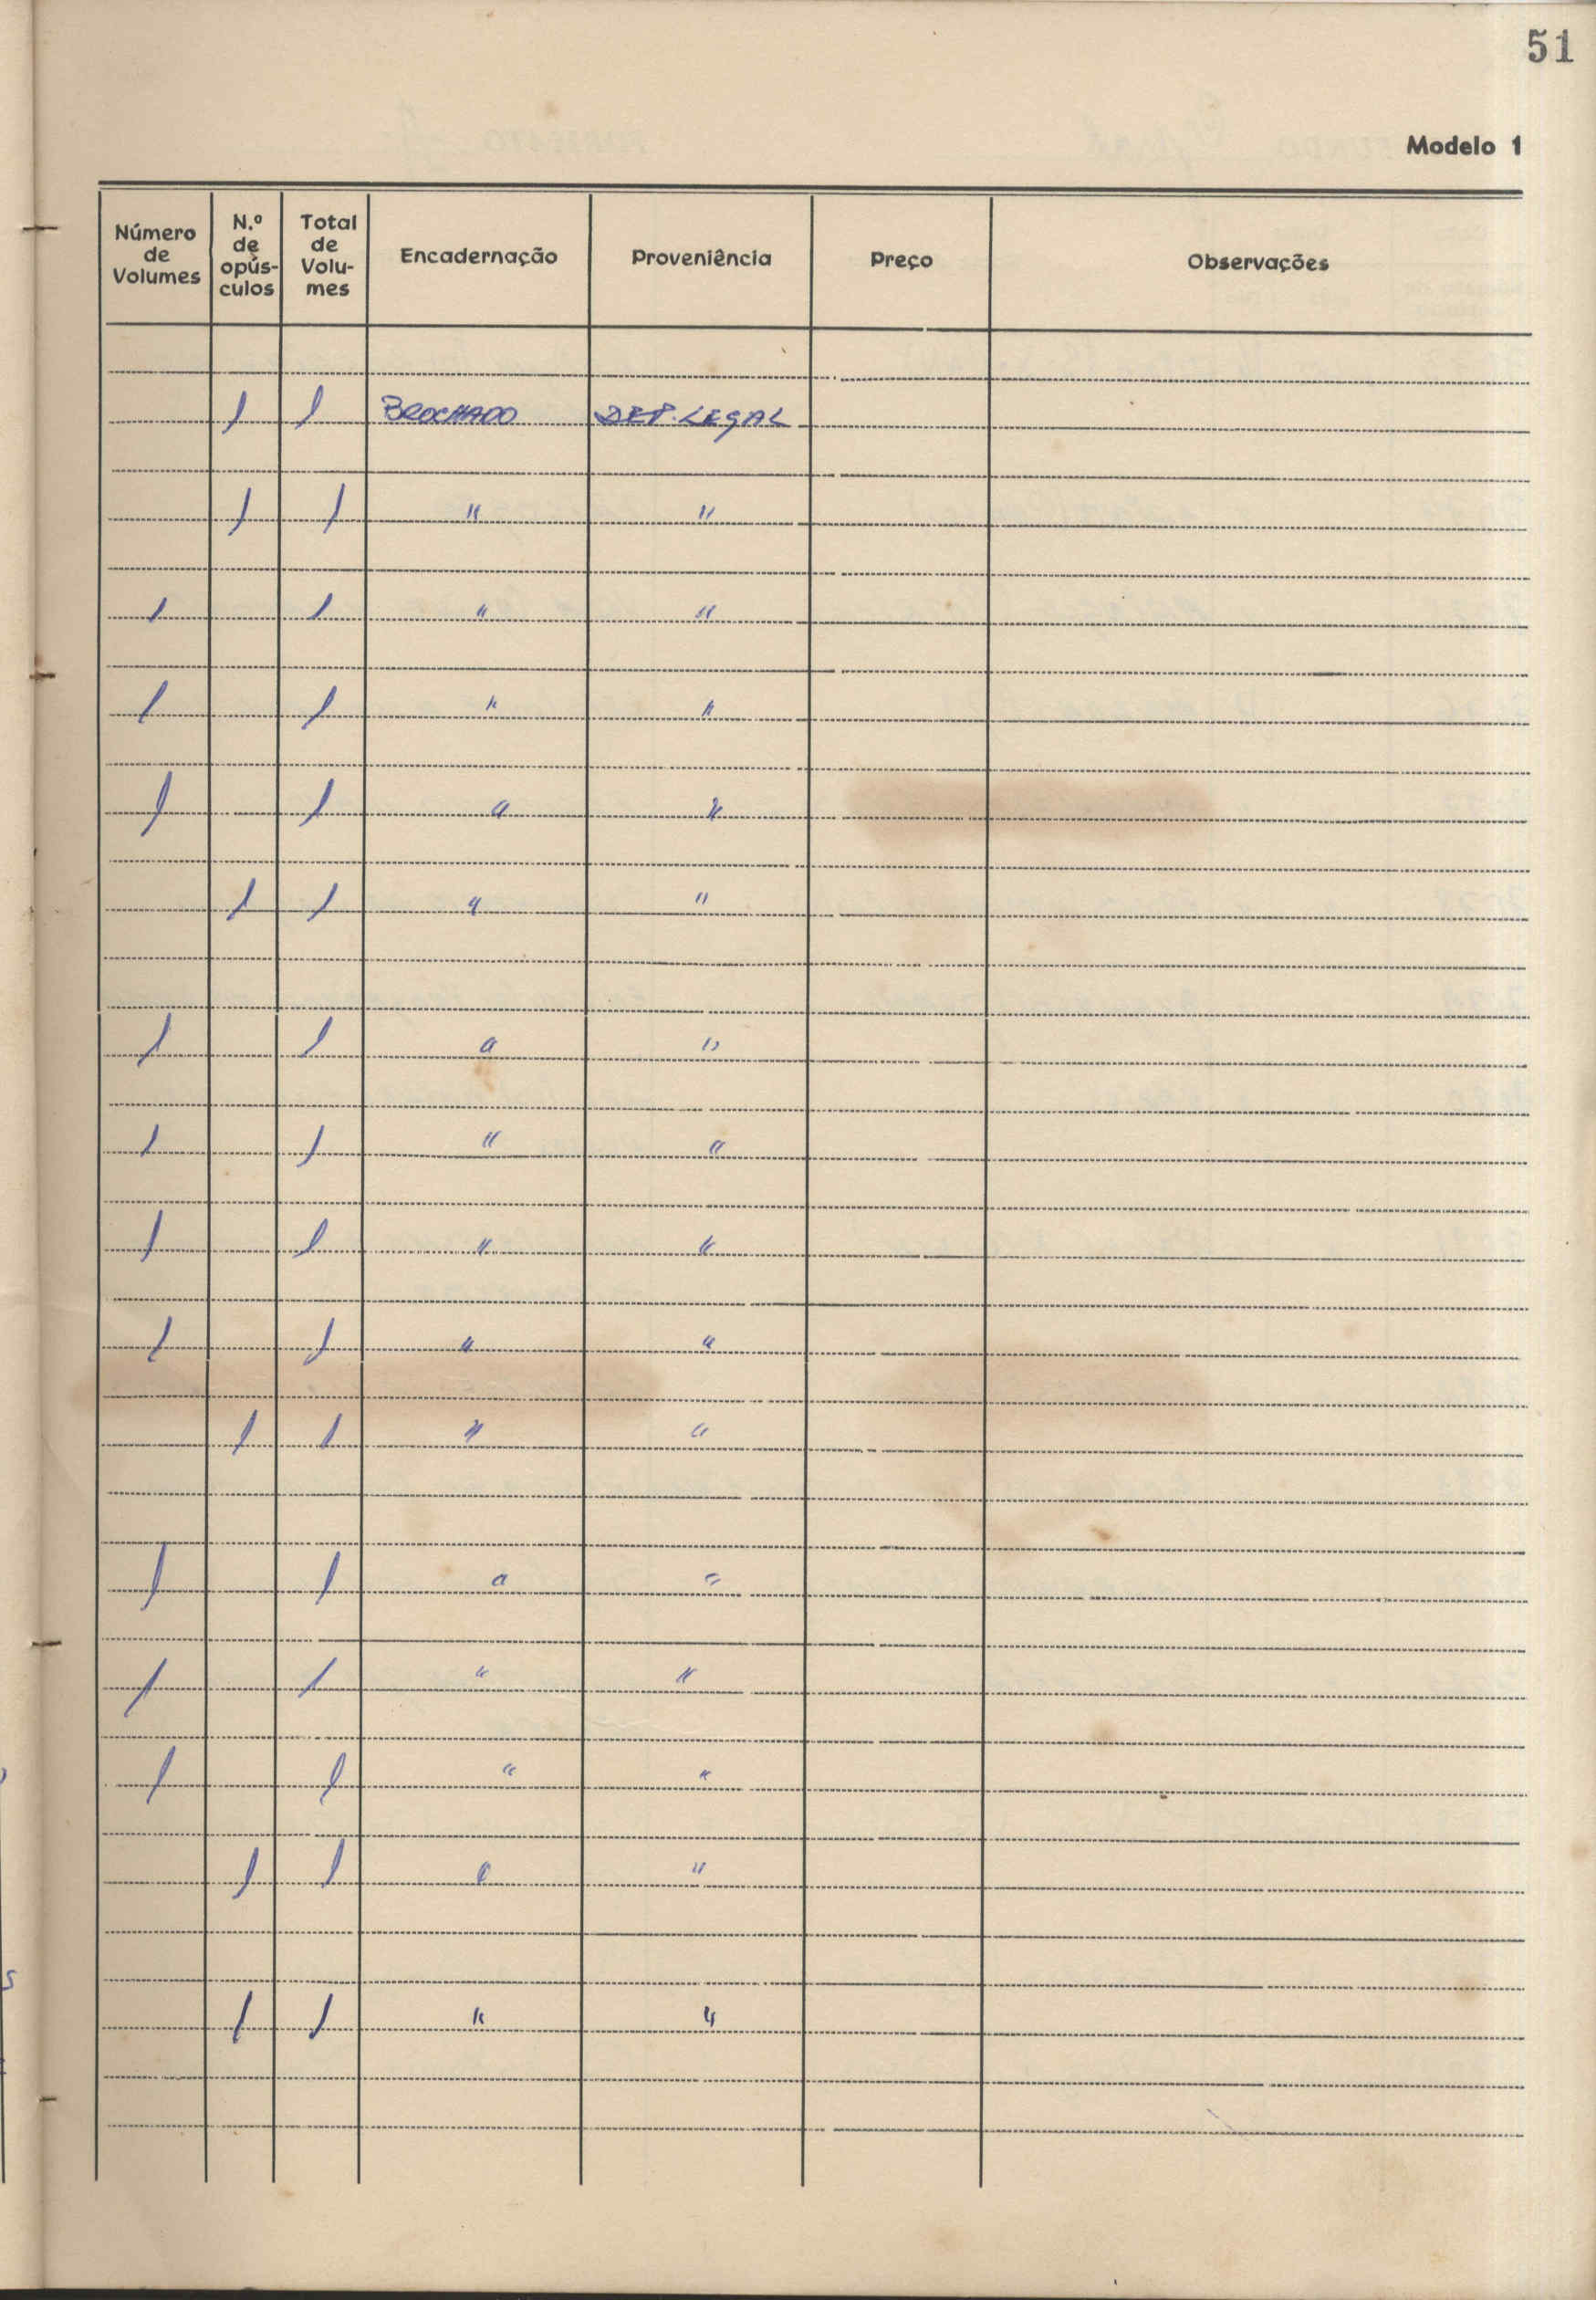 51
Modelo 1
Número de Volumes | N.º de opús-culos | Total de Volu-mes | Encadernação | Proveniência | Preço | Observações
 | 1 | 1 | BROCHADO | DEP. LEGAL
 | 1 | 1 | " | "
1 | | 1 | " | "
1 | | 1 | " | "
1 | | 1 | " | "
 | 1 | 1 | " | "
1 | | 1 | " | "
1 | | 1 | " | "
1 | | 1 | " | "
1 | | 1 | " | "
 | 1 | 1 | " | "
1 | | 1 | " | "
1 | | 1 | " | "
1 | | 1 | " | "
 | 1 | 1 | " | "
 | 1 | 1 | " | "